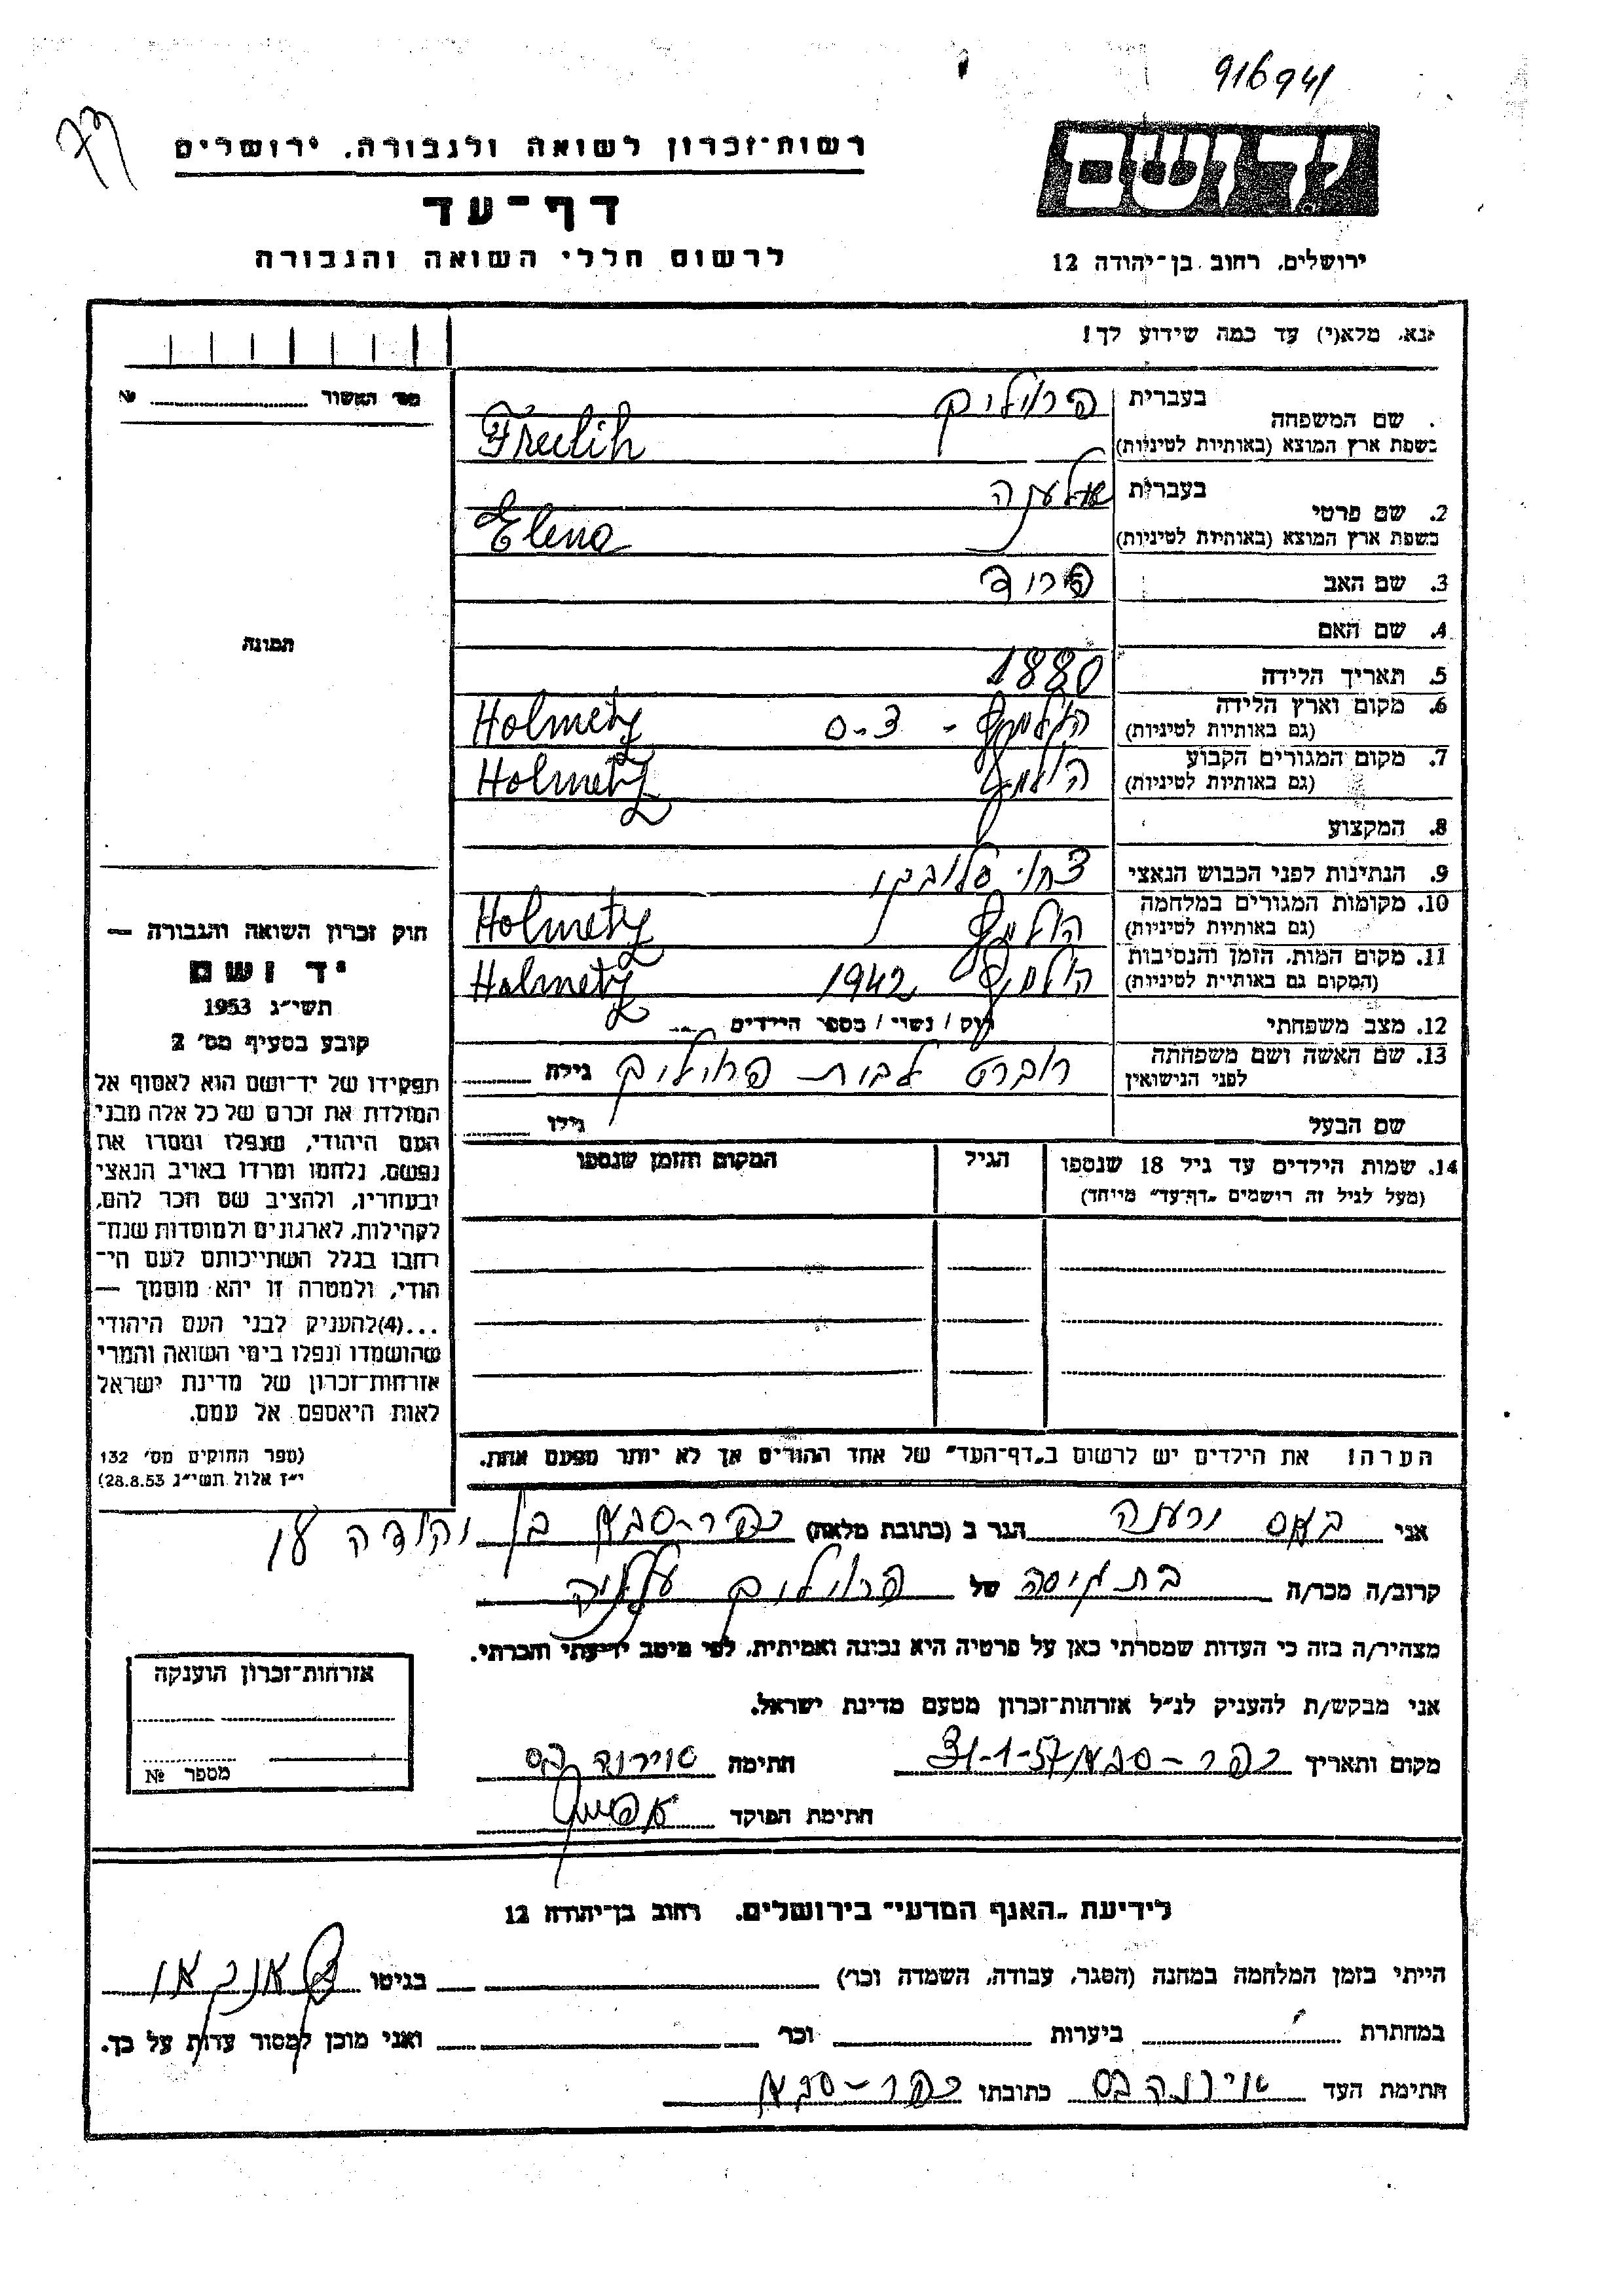 916941
רשות־זכרון לשואה ולגבורה. ירושלים
דף־עד
לרשום חללי השואה והגבורה
ירושלים, רחוב בן־יהודה 12
נא, מלא(י) עד כמה שידוע לך!
מס׳ האשור №
שם המשפחה
בעברית פרוליק
בשפת ארץ המוצא (באותיות לטיניות) Freilih
2. שם פרטי
בעברית
בשפת ארץ המוצא (באותיות לטיניות) Elena
3. שם האב
4. שם האם
5. תאריך הלידה 1880
6. מקום וארץ הלידה
(גם באותיות לטיניות) Holmetz
7. מקום המגורים הקבוע
(גם באותיות לטיניות) Holmetz
8. המקצוע
9. הנתינות לפני הכבוש הנאצי
10. מקומות המגורים במלחמה
(גם באותיות לטיניות) Holmetz
11. מקום המות, הזמן והנסיבות
(המקום גם באותיות לטיניות) 1942 Holmetz
12. מצב משפחתי רוק / נשוי / מספר הילדים
13. שם האשה ושם משפחתה
לפני הנישואין גילה
שם הבעל גילו
14. שמות הילדים עד גיל 18 שנספו
(מעל לגיל זה רושמים „דף־עד״ מיוחד)
הגיל
המקום והזמן שנספו
הערה! את הילדים יש לרשום ב„דף־העד״ של אחד ההורים אך לא יותר מפעם אחת.
תמונה
חוק זכרון השואה והגבורה —
יד ושם
תשי״ג 1953
קובע בסעיף מס׳ 2
תפקידו של יד־ושם הוא לאסוף אל
המולדת את זכרם של כל אלה מבני
העם היהודי, שנפלו ומסרו את
נפשם, נלחמו ומרדו באויב הנאצי
ובעוזריו, ולהציב שם וזכר להם,
לקהילות, לארגונים ולמוסדות שנח־
רבו בגלל השתייכותם לעם הי־
הודי, ולמטרה זו יהא מוסמך —
...(4)להעניק לבני העם היהודי
שהושמדו ונפלו בימי השואה והמרי
אזרחות־זכרון של מדינת ישראל
לאות היאספם אל עמם.
(ספר החוקים מס׳ 132
י״ז אלול תשי״ג 28.8.53)
אני הגר ב (כתובת מלאה) כפר-סבא בן יהודה
קרוב/ה מכר/ה בת גיסה של פרוליק
מצהיר/ה בזה כי העדות שמסרתי כאן על פרטיה היא נכונה ואמיתית, לפי מיטב ידיעתי והכרתי.
אני מבקש/ת להעניק לנ״ל אזרחות־זכרון מטעם מדינת ישראל.
מקום ותאריך כפר-סבא 31-1-57 חתימה
חתימת הפוקד
אזרחות־זכרון הוענקה
מספר №
לידיעת „האגף המדעי״ בירושלים. רחוב בן־יהודה 12
הייתי בזמן המלחמה במחנה (הסגר, עבודה, השמדה וכר׳) בגיטו
במחתרת ביערות וכר׳ ואני מוכן למסור עדות על כך.
חתימת העד כתובתו כפר-סבא